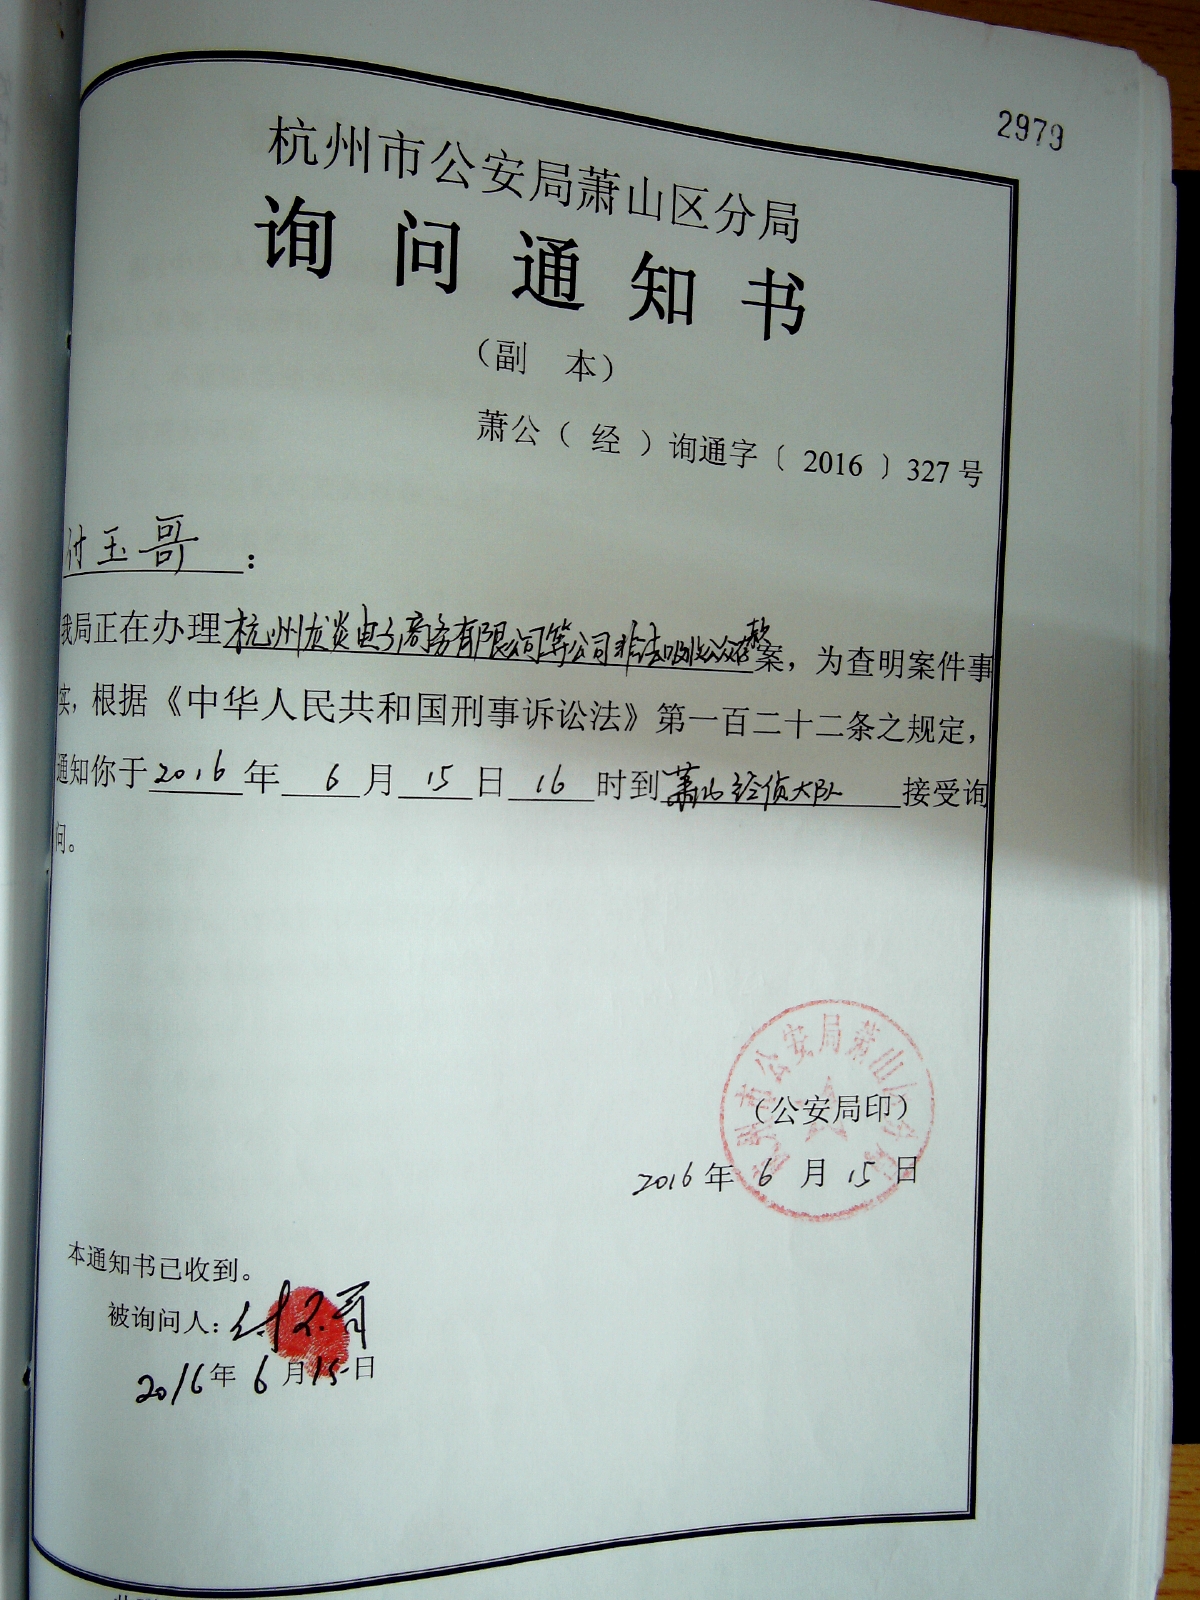 2979
杭州市公安局萧山区分局
询问通知书
（副 本）
萧公（ 经 ）询通字〔 2016 〕327 号
付玉哥：
我局正在办理杭州龙炎电子商务有限公司等公司非法吸收公众存款案，为查明案件事
实，根据《中华人民共和国刑事诉讼法》第一百二十二条之规定，
通知你于2016年 6 月 15 日 16 时到萧山经侦大队 接受询
问。
杭州市公安局萧山区分局
（公安局印）
2016年 6 月 15 日
本通知书已收到。
被询问人：付玉哥
2016年 6 月15日